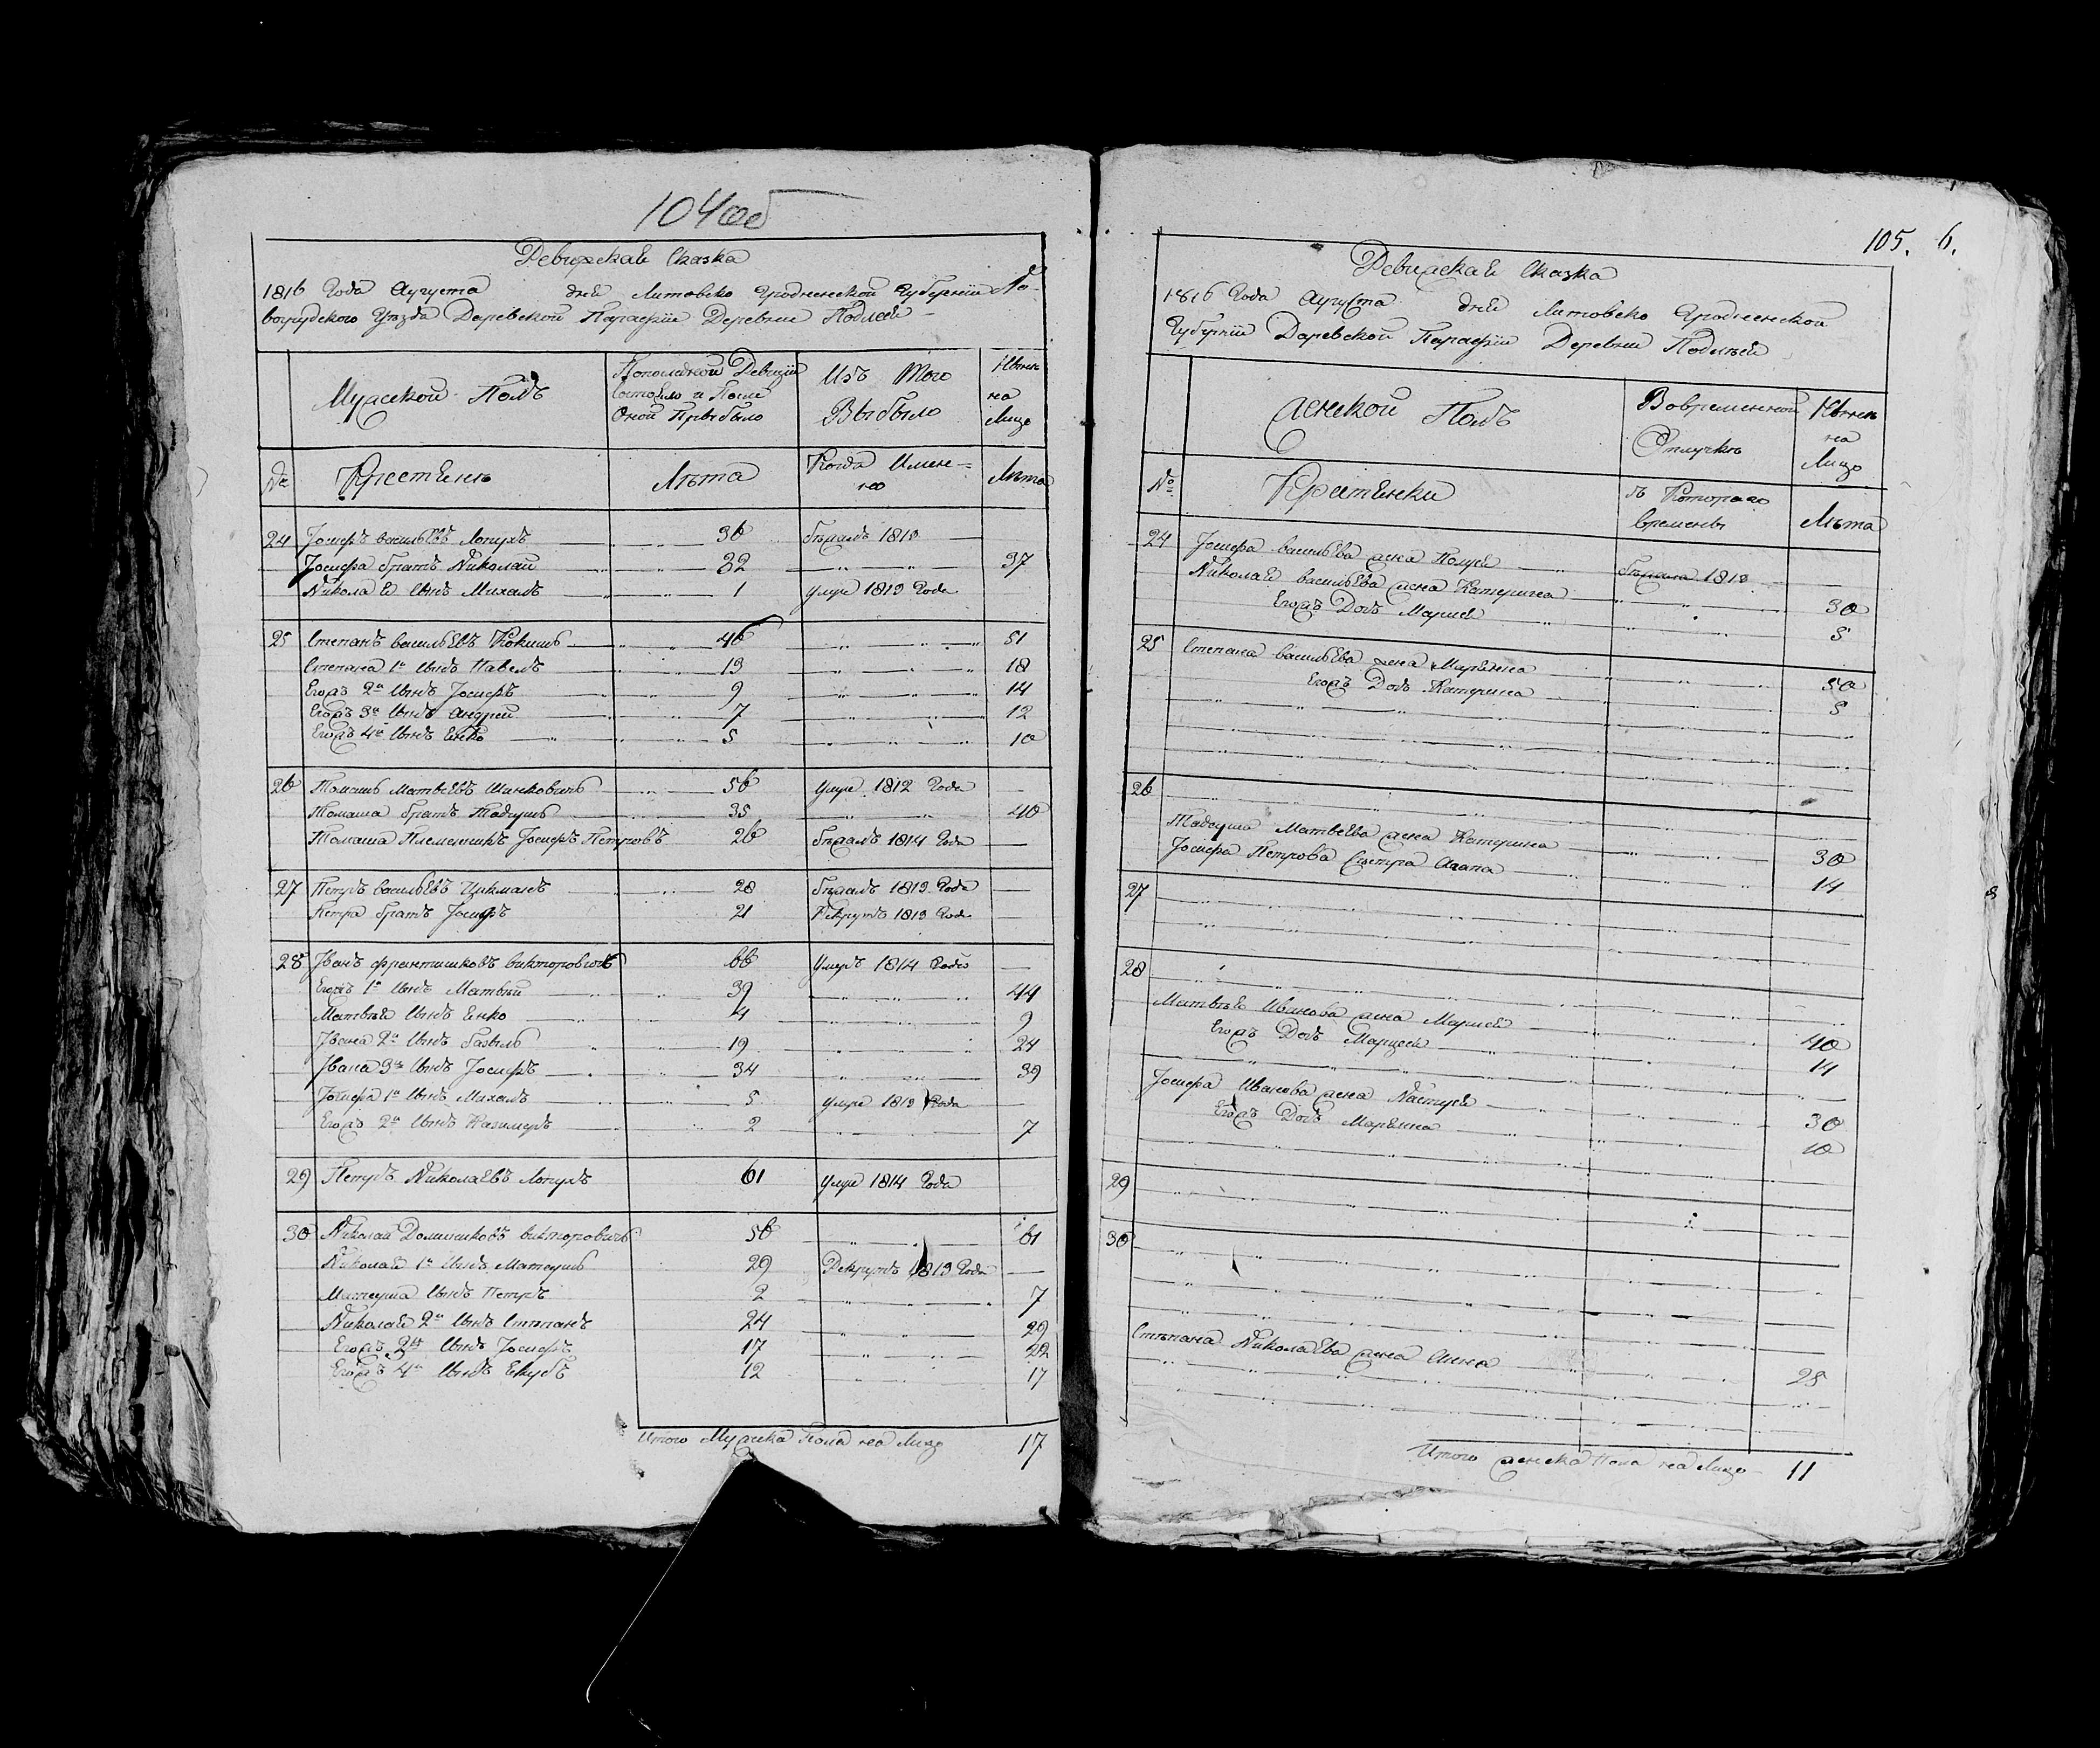 104об
Ревижская Сказка
1816 Года Августа дня Литовско Гродненской Губернiи Но-
вогрудского Уезда Даревской Парафiи Деревни Подлесе
Мужеской Полъ
Пополедной Ревизiи
состояло и После
Оной Прибыло
Изъ Того
Выбыло
Ныне
на
Лицо
№
Крестяне
Лѣта
Когда Имен-
но
Лѣта
24 Iосифъ васильевъ Лопухъ 36 бежалъ 1813
Iосифа братъ Николай 32 37
Николая сынъ Михалъ 1 умре 1813 Года
25 Степанъ васильевъ Кокишъ 46 51
Степана 1й сынъ Павелъ 13 18
Егожъ 2й сынъ Iосифъ 9 14
Егожъ 3й сынъ Андрей 7 12
Егожъ 4й сынъ Янко 5 10
26 Томашъ Матвеевъ Шинковичъ 56 умре 1812 Года
Томаша братъ Тадеушъ 35 40
Томаша Племенникъ Iосифъ Петровъ 26 бежалъ 1814 Года
27 Петръ васильевъ Цикманъ 28 бежалъ 1813 Года
Петра братъ Iосифъ 21 Рекрутъ 1813 Года
28 Iванъ франтишковъ викторовичъ 66 умеръ 1814 Года
Егожъ 1й сынъ Матвей 39 44
Матвѣя сынъ Янко 4 9
Iвана 2й сынъ базыль 19 24
Iвана 3й сынъ Iосифъ 34 39
Iосифа 1й сынъ Михалъ 5 умре 1813 Года
Егожъ 2й сынъ Казимеръ 2 7
29 Петръ Николаевъ Лопухъ 61 умре 1814 Года
30 Николай Доминиковъ викторовичъ 56 61
Николая 1й сынъ Матеушъ 29 Рекрутъ 1813 Года
Матеуша сынъ Петръ 2 7
Николая 2й сынъ Стѣпанъ 24 29
Егожъ 3й сынъ Iосифъ 17 22
Егожъ 4й сынъ Якубъ 12 17
Итого Мужска Пола на Лицо 17
105. 6.
Ревижская Сказка
1816 Года Августа дня Литовско Гродненской
Губернiи Даревской Парафiи Деревни Подлѣсей
Женской Полъ
Вовременной
Отлучкѣ
Ныне
на
Лицо
№
Крестянки
съ Котораго
времены
Лѣта
24 Iосифа васильева жена Полуся бежала 1813
Николая васильева жена Катерина 30
Егожъ Дочь Марися 5
25 Степана васильева жена Маряна 50
Егожъ Дочь Катерина 5
26
Тадеуша Матвеева жена Катерина 30
Iосифа Петрова Сестра Агапа 14
27
28
Матвѣя Иванова жена Марися 40
Егожъ Дочь Марцеся 14
Iосифа Иванова жена Настуся 30
Егожъ Дочь Маряна 10
29
30
Стѣпана Николаева жена Анна 25
Итого женска Пола на Лицо 11